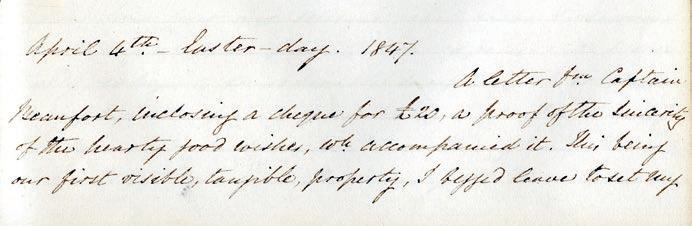 April 4th - Easter-day. 1847.
A letter fm Captain
Beaufort, inclosing a cheque for £20, a proof of the sincerity
of the hearty good wishes, wh accompanied it. This being
our first visible, tangible, property, I begged leave to set my